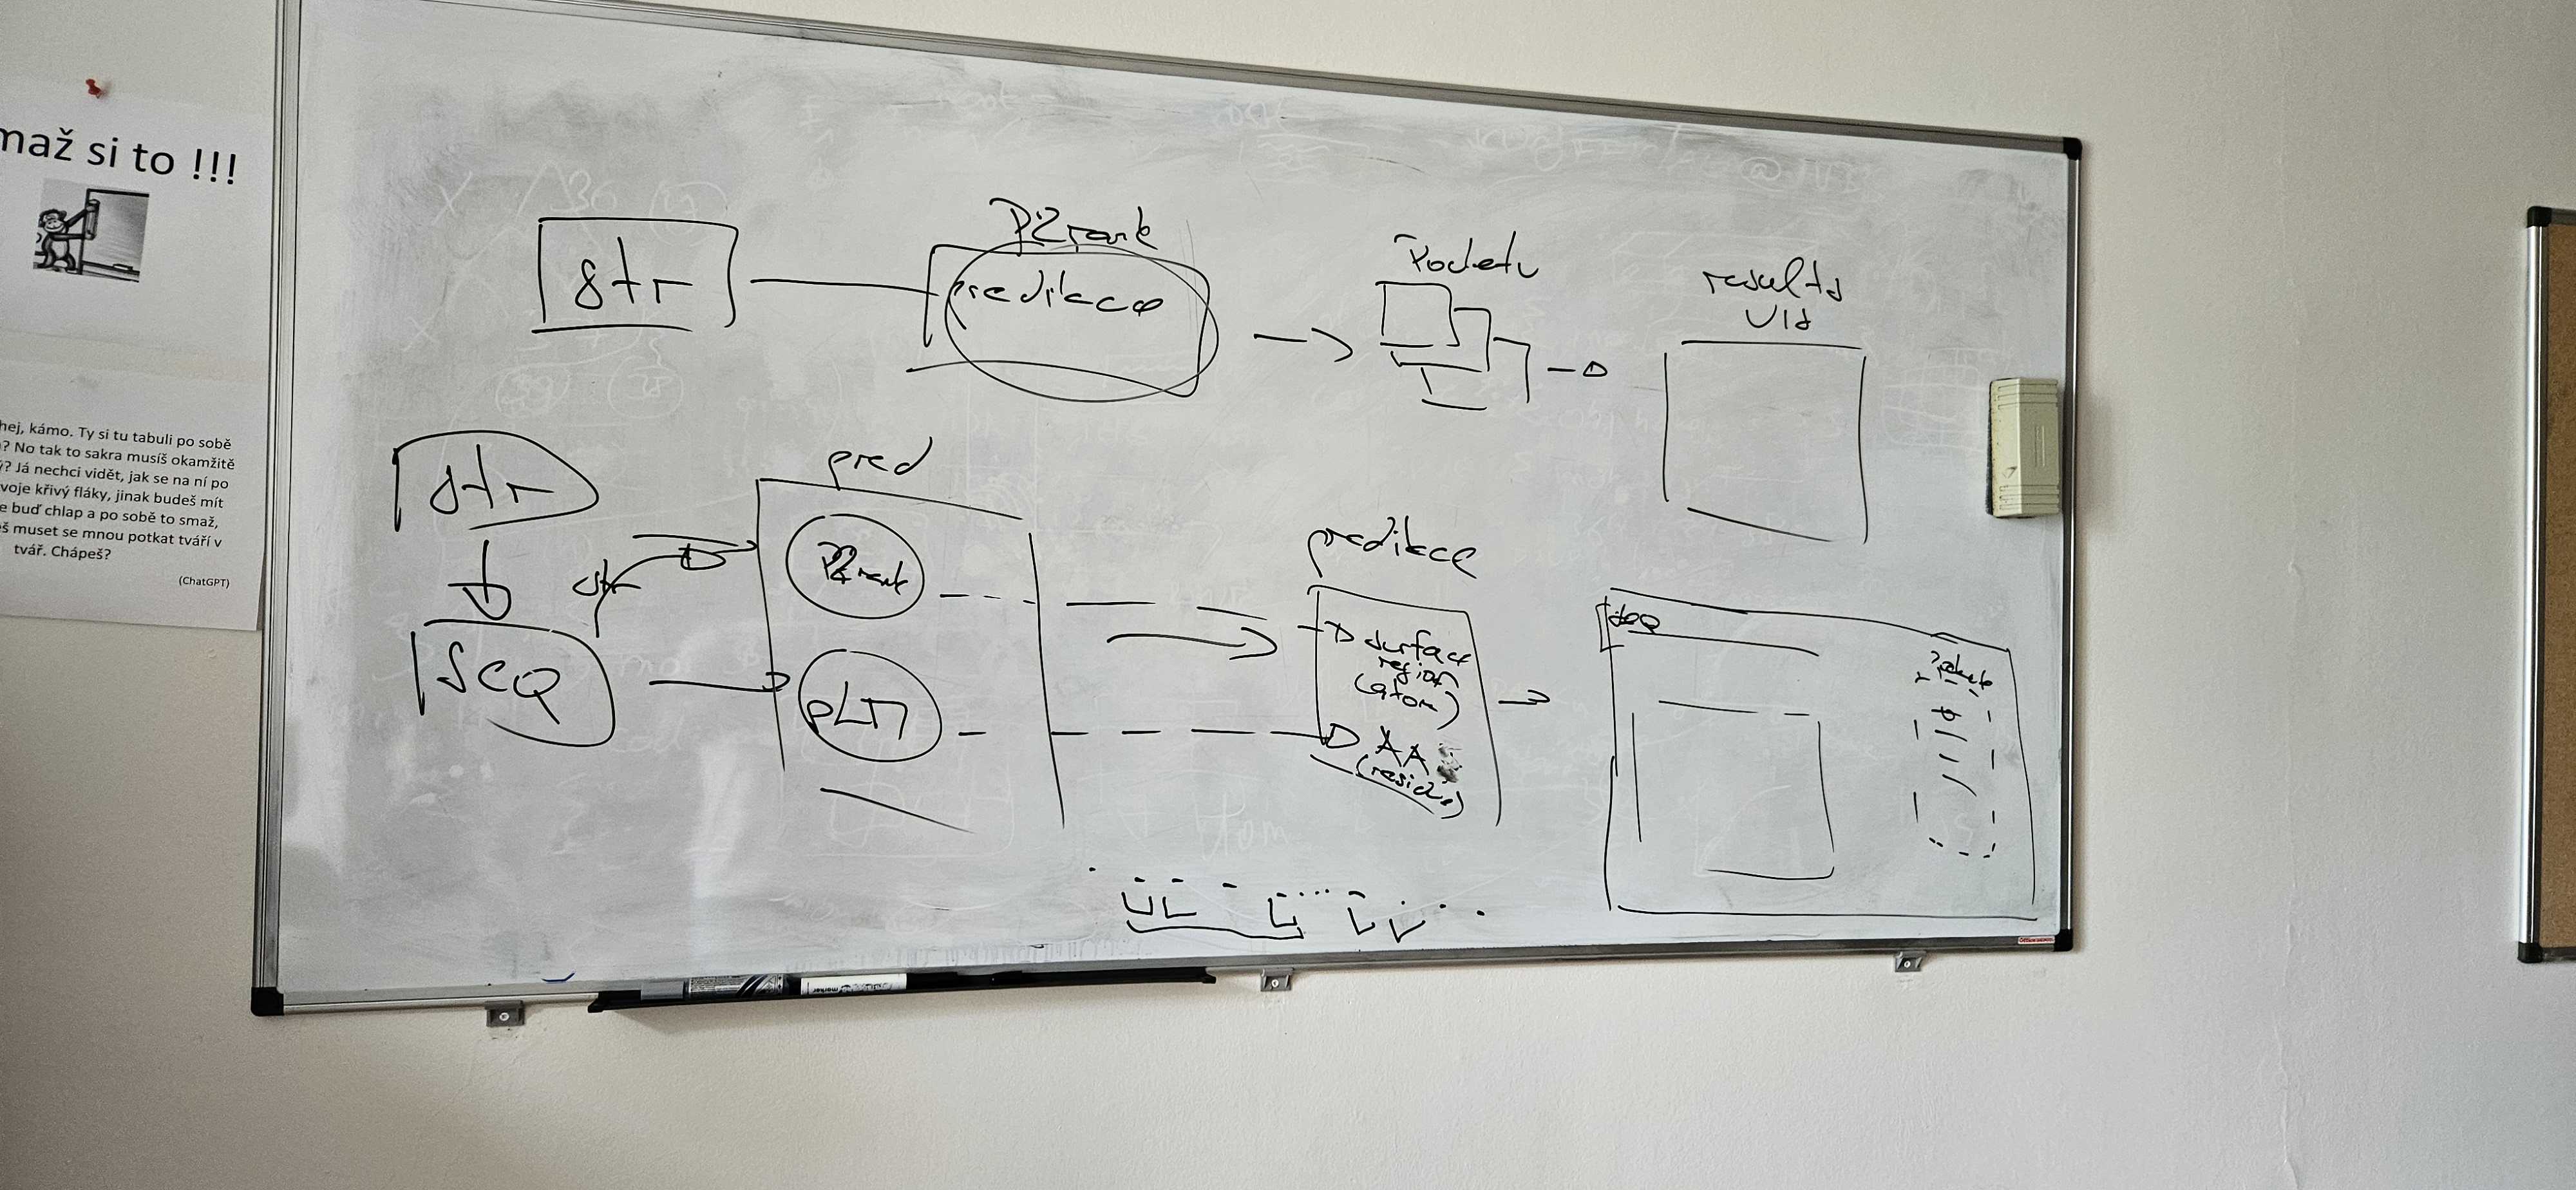 maž si to !!!
hej, kámo. Ty si tu tabuli po sobě
? No tak to sakra musíš okamžitě
? Já nechci vidět, jak se na ní po
voje křivý fláky, jinak budeš mít
e buď chlap a po sobě to smaž,
eš muset se mnou potkat tváří v
tvář. Chápeš?
(ChatGPT)
str
P2rank
predikce
Pockety
results
vis
str
SEQ
str
pred
P2rank
pLM
predikce
surface
region
(atom)
AA
(residue)
SEQ
Pockets
Atom
marker